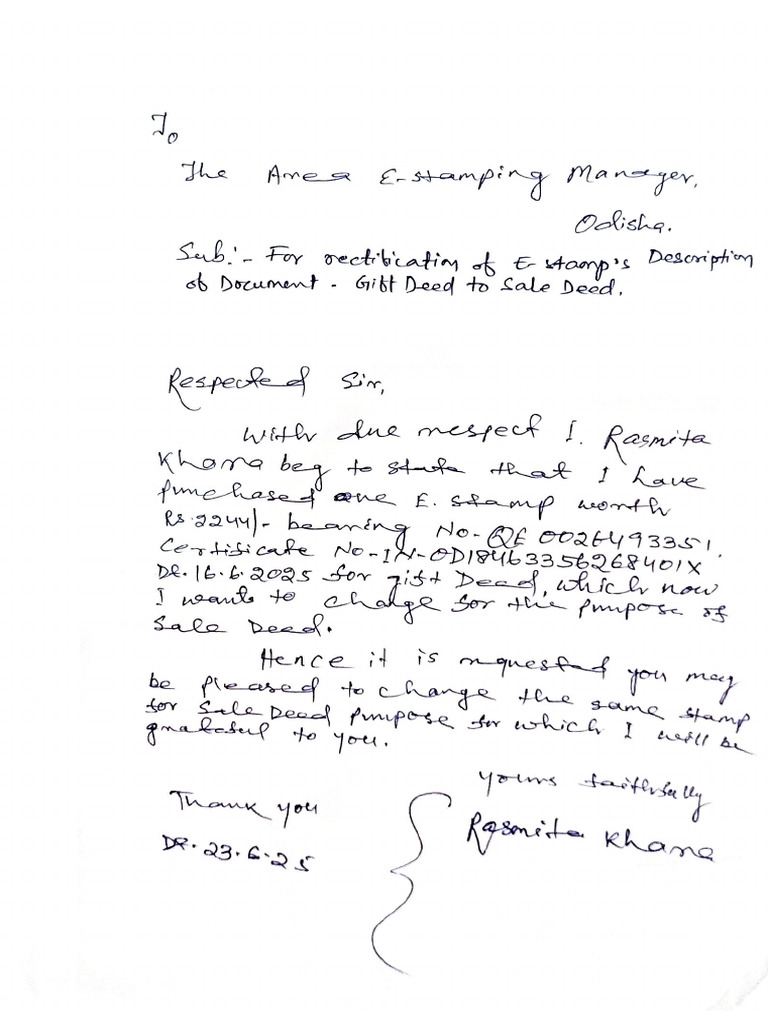 To
The Area E-stamping Manager,
Odisha.
Sub:- For rectification of E stamp's Description
of Document - Gift Deed to Sale Deed.
Respected Sir,
With due respect I. Rasmita
Khara beg to state that I have
purchased one E. stamp worth
Rs.2244/- bearing No-QE 0026493351.
Certificate No-IN-OD18463356268401X
Dt.16.6.2025 for gift Deed, which now
I want to change for the purpose of
Sale Deed.
Hence it is requested you may
be pleased to change the same stamp
for Sale Deed purpose for which I will be
grateful to you.
Thank you
Dt.23.6.25
yours faithfully
Rasmita Khara